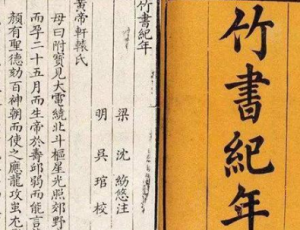 竹書紀年
竹書紀年
梁沈約悠注
明吳琯校
黃帝軒轅氏
母曰附寶見大電繞北斗樞星光照郊野
而孕二十五月而生帝於壽邱弱而能言
顏有聖德劾百神朝而使之應龍攻蚩尤